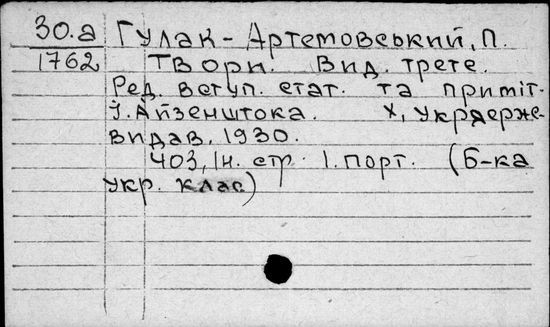 30.а Гулак-Артемовський, П.
1762 Твори. Вид. трете.
Ред. вступ. стат. та приміт.
І. Айзенштока. Х, Укрдерже-
видав, 1930.
403, Ін. стр. І. порт. (Б-ка
укр. клас)